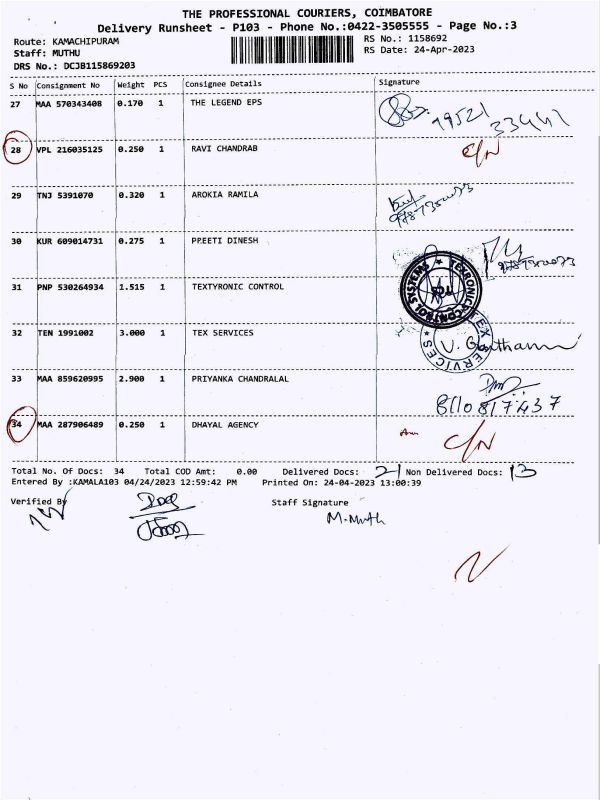 THE PROFESSIONAL COURIERS, COIMBATORE
Delivery Runsheet - P103 - Phone No.:0422-3505555 - Page No.:3
Route: KAMACHIPURAM RS No.: 1158692
Staff: MUTHU RS Date: 24-Apr-2023
DRS No.: DCJB115869203
S No Consignment No Weight PCS Consignee Details Signature
27 MAA 570343408 0.170 1 THE LEGEND EPS 99521
33441
28 VPL 216035125 0.250 1 RAVI CHANDRAB C/N
29 TNJ 5391070 0.320 1 AROKIA RAMILA
30 KUR 609014731 0.275 1 PREETI DINESH
31 PNP 530264934 1.515 1 TEXTYRONIC CONTROL TEXRONIC CONTROL SYSTEMS
32 TEN 1991002 3.000 1 TEX SERVICES TEX SERVICES
33 MAA 859620995 2.900 1 PRIYANKA CHANDRALAL
8110817437
34 MAA 287906489 0.250 1 DHAYAL AGENCY C/N
Total No. Of Docs: 34 Total COD Amt: 0.00 Delivered Docs: 21 Non Delivered Docs: 13
Entered By :KAMALA103 04/24/2023 12:59:42 PM Printed On: 24-04-2023 13:00:39
Verified By Staff Signature
M. Muth